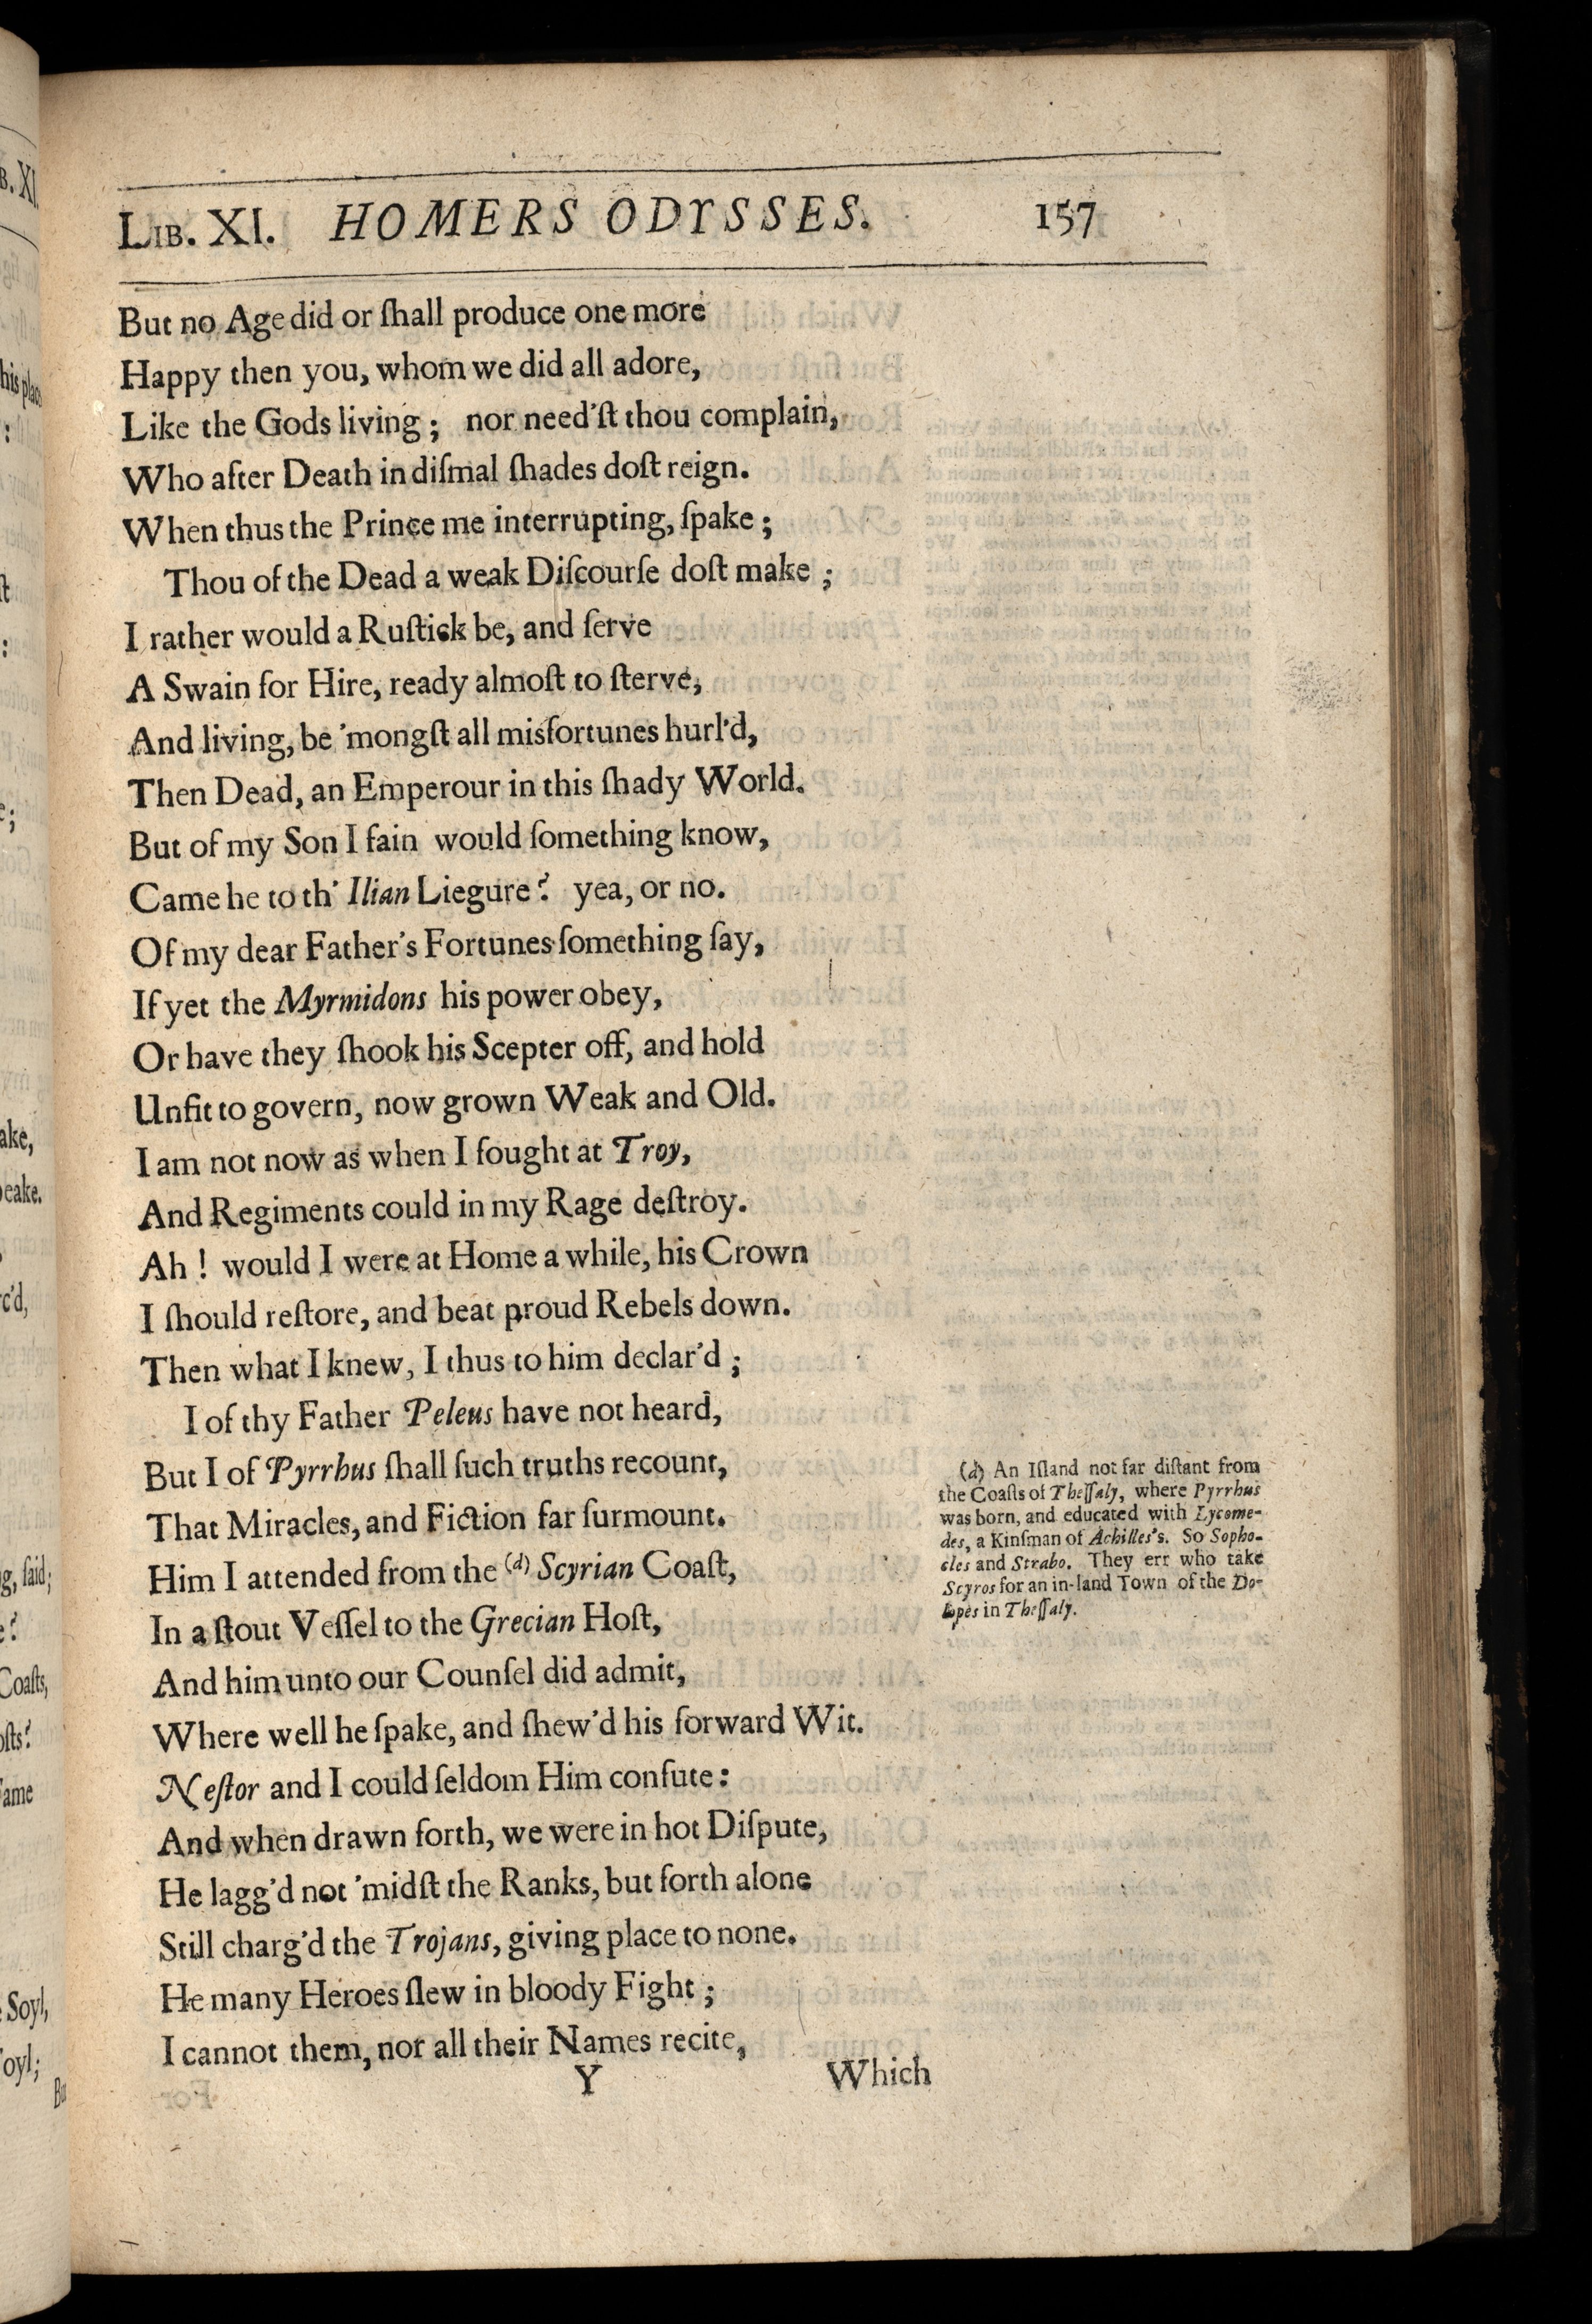 LIB. XI. HOMERS ODYSSES. 157
But no Age did or ſhall produce one more
Happy then you, whom we did all adore,
Like the Gods living; nor need'ſt thou complain,
Who after Death in diſmal ſhades doſt reign.
When thus the Prince me interrupting, ſpake;
Thou of the Dead a weak Diſcourſe doſt make;
I rather would a Ruſtick be, and ſerve
A Swain for Hire, ready almoſt to ſterve,
And living, be 'mongſt all misfortunes hurl'd,
Then Dead, an Emperour in this ſhady World.
But of my Son I fain would ſomething know,
Came he to th' Ilian Liegure? yea, or no.
Of my dear Father's Fortunes ſomething ſay,
If yet the Myrmidons his power obey,
Or have they ſhook his Scepter off, and hold
Unfit to govern, now grown Weak and Old.
I am not now as when I fought at Troy,
And Regiments could in my Rage deſtroy.
Ah! would I were at Home a while, his Crown
I ſhould reſtore, and beat proud Rebels down.
Then what I knew, I thus to him declar'd;
I of thy Father Peleus have not heard,
But I of Pyrrhus ſhall ſuch truths recount,
That Miracles, and Fiction far ſurmount.
Him I attended from the (d) Scyrian Coaſt,
In a ſtout Veſſel to the Grecian Hoſt,
And him unto our Counſel did admit,
Where well he ſpake, and ſhew'd his forward Wit.
Neſtor and I could ſeldom Him confute:
And when drawn forth, we were in hot Diſpute,
He lagg'd not 'midſt the Ranks, but forth alone
Still charg'd the Trojans, giving place to none.
He many Heroes ſlew in bloody Fight;
I cannot them, nor all their Names recite,
Y Which
(d) An Iſland not far diſtant from
the Coaſts of Theſſaly, where Pyrrhus
was born, and educated with Lycome-
des, a Kinſman of Achilles's. So Sopho-
cles and Strabo. They err who take
Scyros for an in-land Town of the Do-
lopes in Theſſaly.